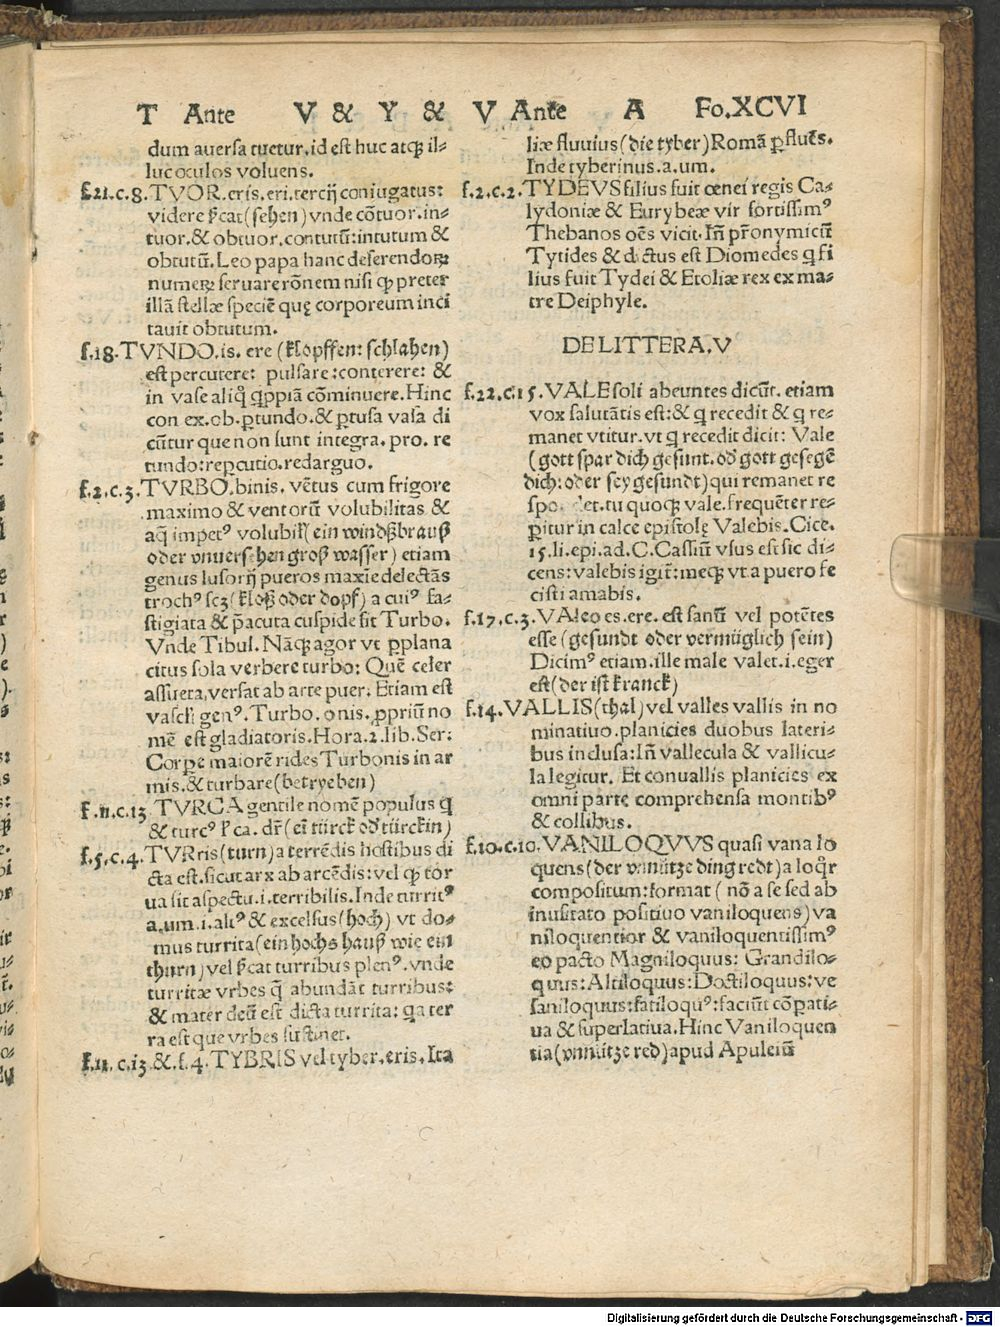 T Ante V & Y & V Ante A Fo.XCVI
dum auersa tuetur. id est huc atqꝫ il⸗
luc oculos voluens.
f.21.c.8. TVOR. eris. eri. tercij coniugatus:
videre s͛cat (sehen) vnde cōtuor. in⸗
tuor. & obtuor. contutū: intutum &
obtutū. Leo papa hanc deferendoꝝ
numeꝝ seruare rōnem nisi qꝫ preter
illā stellæ speciē quę corporeum inci
tauit obtutum.
f.18. TVNDO. is. ere (klopffen: schlahen)
est percutere: pulsare: conterere: &
in vase aliq̊ qͥppiā cōminuere. Hinc
con ex. ob. ꝑtundo. & ꝑtusa vasa di
cūtur que non sunt integra. pro. re
tundo: reꝑcutio. redarguo.
f.2.c.3. TVRBO. binis. vētus cum frigore
maximo & ventorū volubilitas &
aq̄ impetꝰ volubiľ (ein windßbrauß
oder vnuersehen groß wasser) etiam
genus lusorij pueros maxīe delectās
trochꝰ scꝫ (kloß oder dopf) a cuiꝰ fa⸗
stigiata & p̄acuta cuspide sit Turbo.
Vnde Tibul. Nāqꝫ agor vt ꝑ plana
citus sola verbere turbo: Quē celer
assueta, versat ab arte puer. Etiam est
vascli genꝰ. Turbo. onis. ꝓpriū no
mē est gladiatoris. Hora. 2. lib. Ser:
Corꝑe maiorē rides Turbonis in ar
mis. & turbare (betryeben)
f.11.c.13. TVRCA gentile nomē populus q̄
& turcꝰ s͛ca. dr̄ (eī türck od͛ türckin)
f.5.c.4. TVRris (turn) a terrēdis hostibus di
cta est. sicut arx ab arcēdis: vel qꝫ tor
ua sit aspectu. i. terribilis. Inde turritꝰ
a. um. i. altꝰ & excelsus (hoch) vt do⸗
mus turrita (ein hochs hauß wie ein
thurn) vel s͛cat turribus plenꝰ. vnde
turritæ vrbes q̄ abundāt turribus:
& mater deū est dicta turrita: qa ter
ra est que vrbes sustinet.
f.11.c.13. & f.4. TYBRIS vel tyber. eris. Ita
liæ fluuius (die tyber) Romā ꝑfluēs.
Inde tyberinus. a. um.
f.2.c.2. TYDEVS filius fuit œnei regis Ca⸗
lydoniæ & Eurybeæ vir fortissimꝰ
Thebanos oēs vicit. Iñ pr̄onymicū
Tytides & dictus est Diomedes q fi
lius fuit Tydei & Etoliæ rex ex ma⸗
tre Deiphyle.
DE LITTERA. V
f.22.c.15. VALE soli abeuntes dicūt. etiam
vox salutātis est: & q recedit & q re⸗
manet vtitur. vt q recedit dicit: Vale
(gott spar dich gesunt. od͛ gott gesegē
dich: oder sey gesundt) qui remanet re
det. tu quoqꝫ vale. frequēter re⸗
ꝑitur in calce epistolę Valebis. Cice.
15. li. epi. ad. C. Cassiū vsus est sic di⸗
cens: valebis igit̄: meqꝫ vt a puero fe
cisti amabis.
f.17.c.3. VAleo es. ere. est sanū vel potētes
esse (gesundt oder vermüglich sein)
Dicimꝰ etiam. ille male valet. i. eger
est (der ist kranck)
f.14. VALLIS (thal) vel valles vallis in no
minatiuo. planicies duobus lateri⸗
bus inclusa: Iñ vallecula & vallicu⸗
la legitur. Et conuallis planicies ex
omni parte comprehensa montibꝰ
& collibus.
f.10.c.10. VANILOQVVS quasi vana lo
quens (der vnnütze ding redt) a loq̄r
compositum: format (nō a se sed ab
inusitato positiuo vaniloquens) va
niloquentior & vaniloquentissimꝰ
eo pacto Magniloquus: Grandilo⸗
quus: Altiloquus: Doctiloquus: ve
saniloquus: fatiloquꝰ: faciūt cōpati⸗
ua & superlatiua. Hinc Vaniloquen
tia (vnnütze red) apud Apuleiū
Digitalisierung gefördert durch die Deutsche Forschungsgemeinschaft - DFG